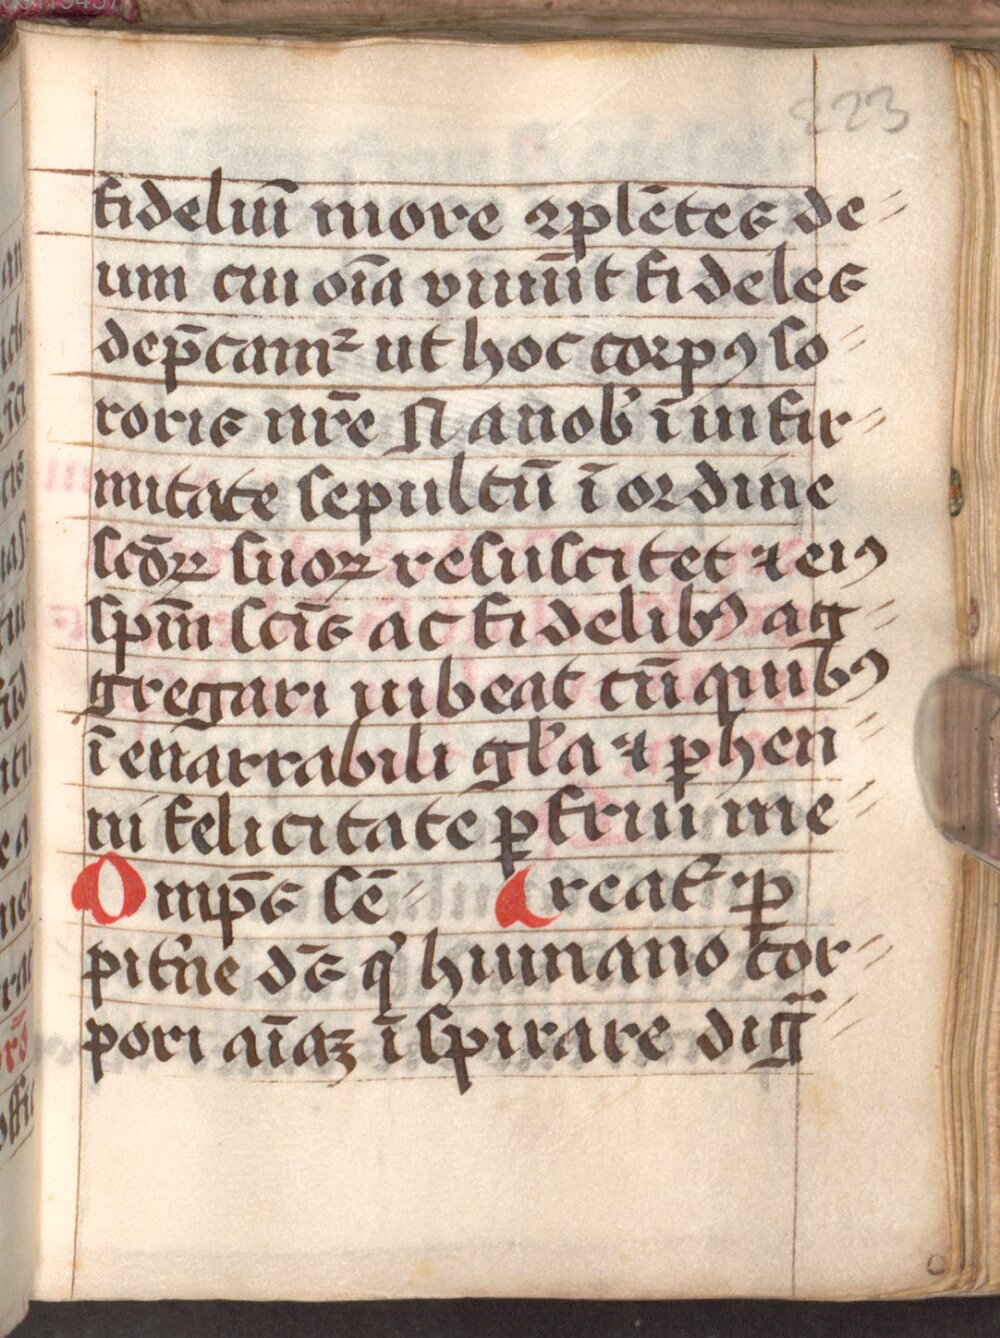 223
fideliū more ꝯplētes de⸗
um cui oīa viuūt fideles
dep̄camꝰ ut hoc corpꝰ so⸗
roris nr̄e N a nob̾ ī infir⸗
mitate sepultū ī ordine
sc̄oꝝ suoꝝ resuscitet ⁊ eiꝰ
sp̄m sc̄is ac fidelibꝰ ag⸗
gregari iubeat cū quibꝰ
ī enarrabili gl̾a ⁊ ꝑhen⸗
ni felicitate ꝑfrui me⸗
Omp̄s sē⸗ Creat̾ ꝑ
pit̾ne ds̄ qͥ humano cor⸗
pori aīaꝫ īspirare dig̅⸗